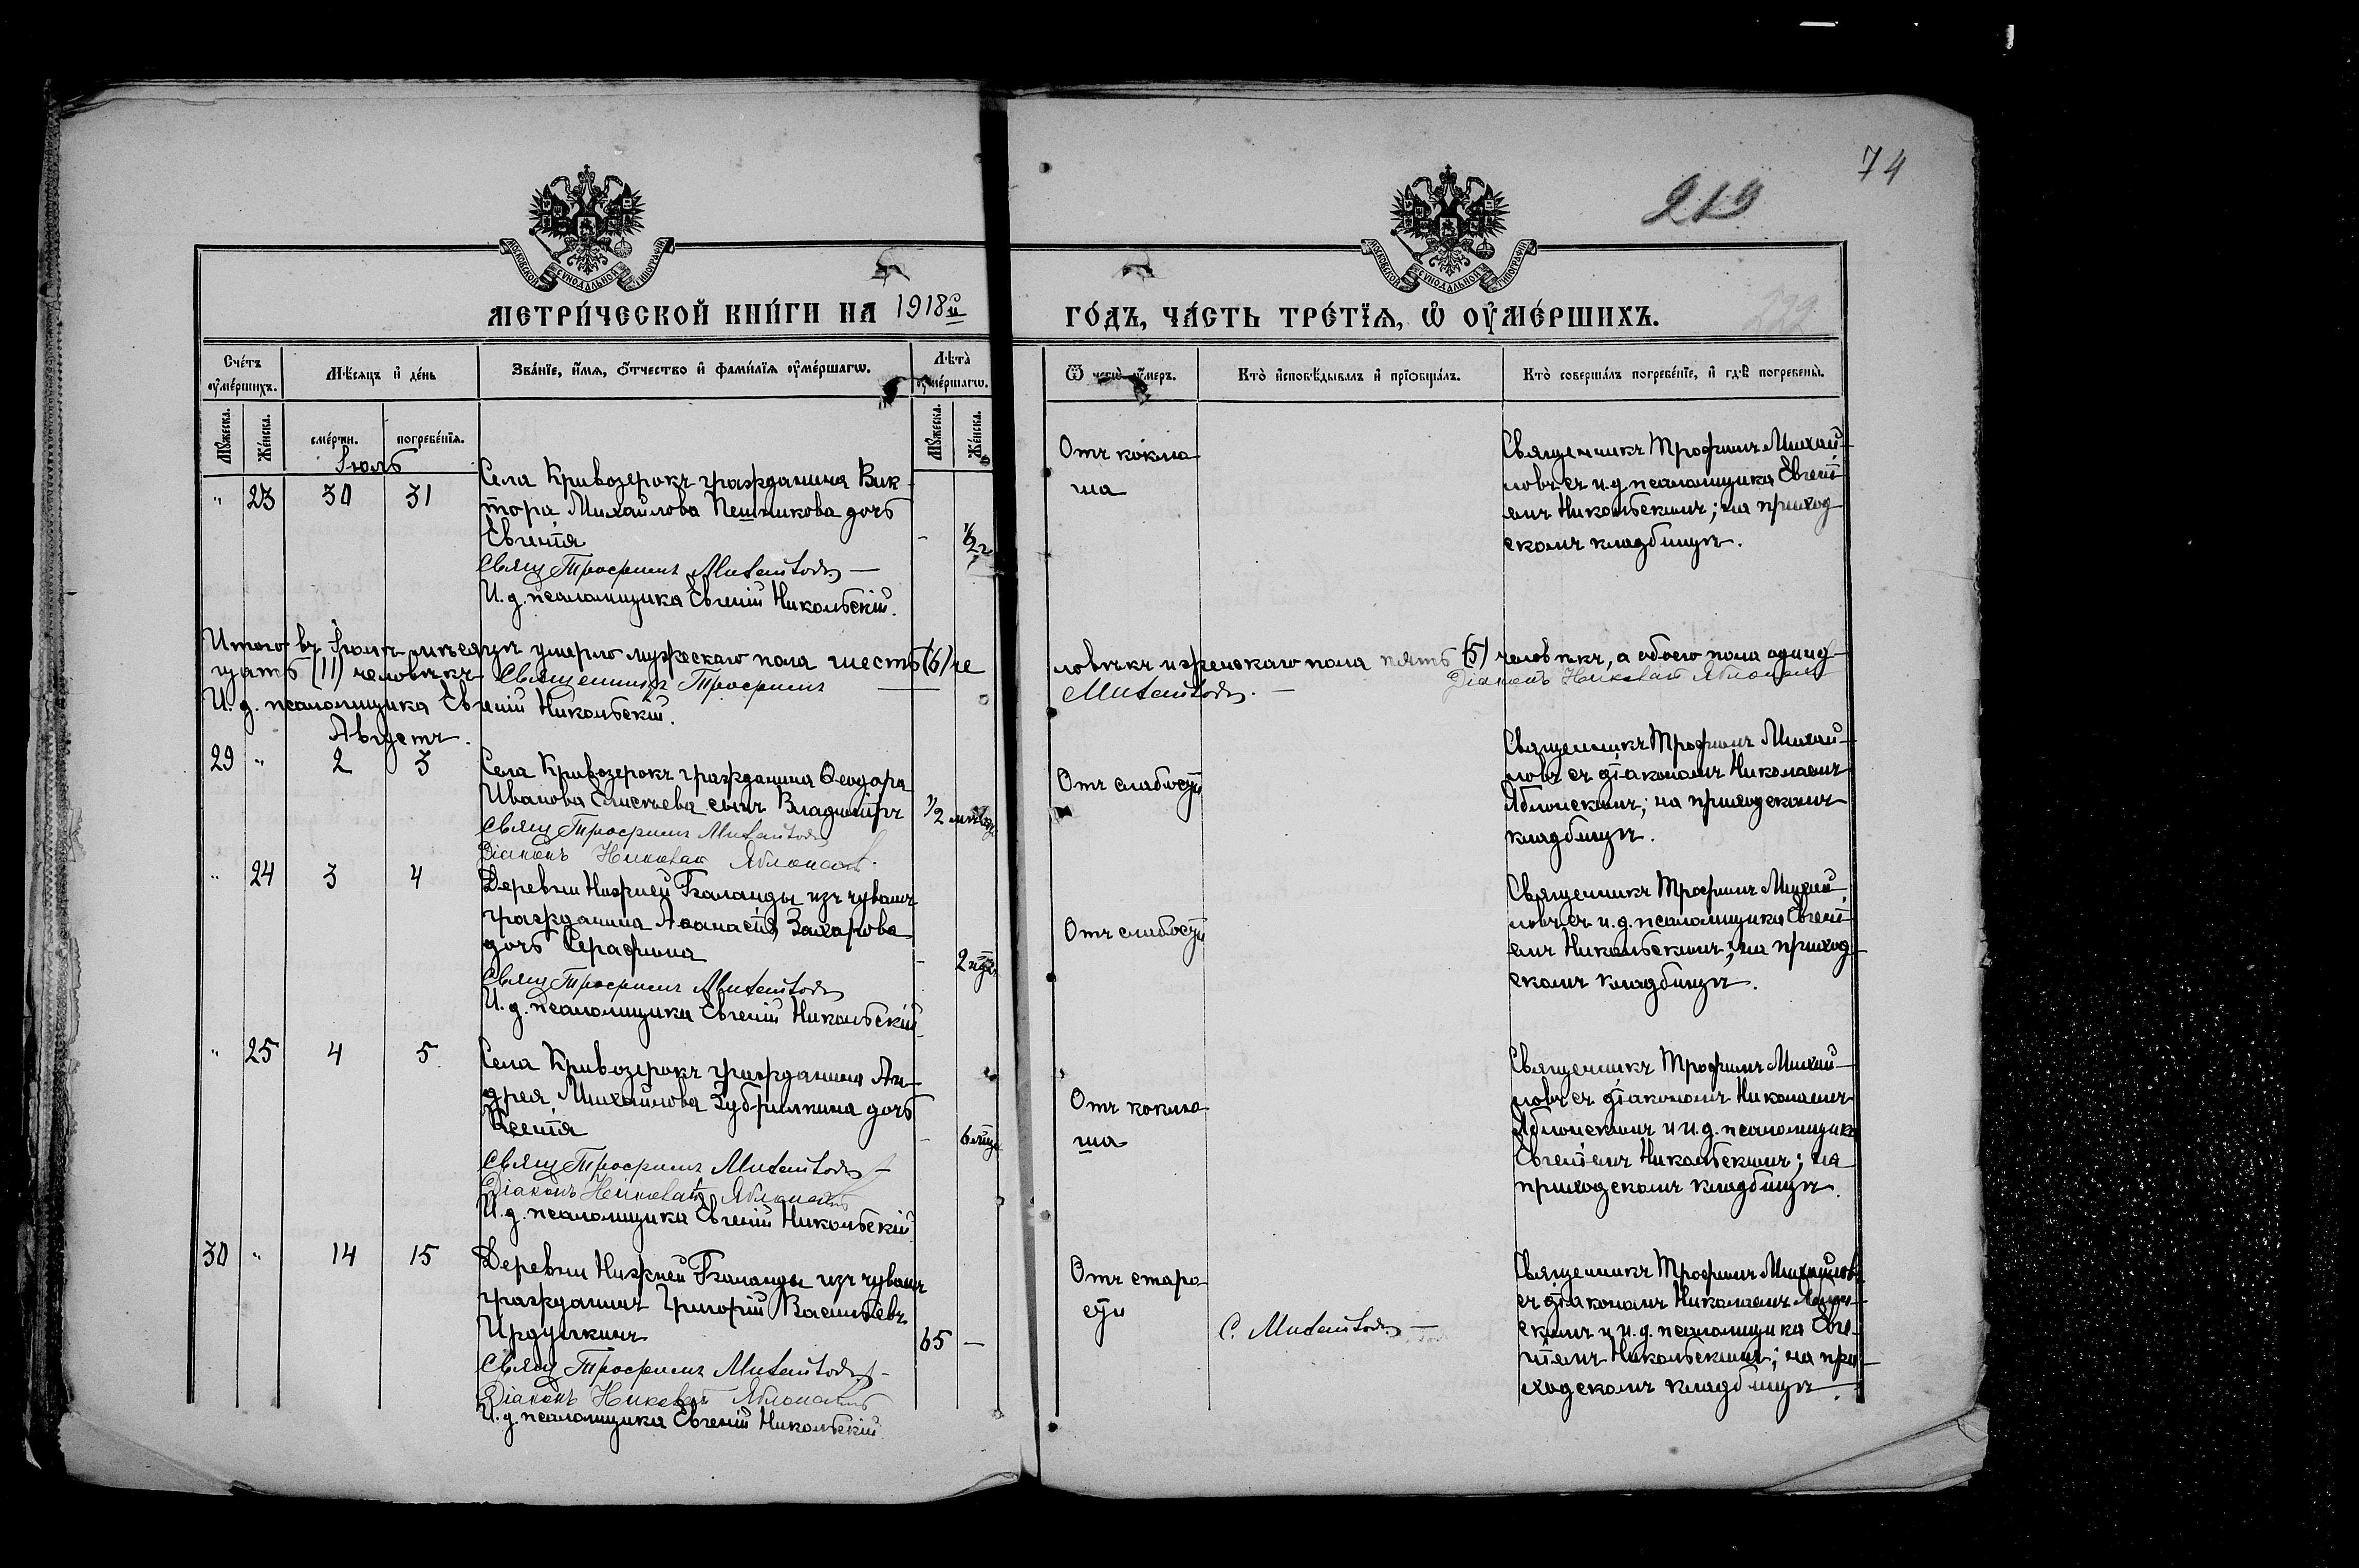 74
219
222
МОСКОВСКОЙ СѴНОДАЛЬНОЙ ТИПОГРАФІИ
МОСКОВСКОЙ СѴНОДАЛЬНОЙ ТИПОГРАФІИ
МЕТРИ́ЧЕСКОЙ КНИ́ГИ НА 1918й ГО́ДЪ, ЧА́СТЬ ТРЕ́ТЇѦ, Ѡ҆ ОУ҆МЕ́РШИХЪ.
Сче́тъ оу҆ме́ршихъ.
Мѣ́сяцъ и҆ де́нь
Зва́нїе, и҆́мѧ, ѻ҆́тчество и҆ фами́лїѧ оу҆ме́ршагѡ.
Лѣ́та оу҆ме́ршагѡ.
Ѿ чегѡ̀ оу҆́меръ.
Кто̀ и҆сповѣ́дывалъ и҆ прїѡбща́лъ.
Кто̀ соверша́лъ погребе́нїе, и҆ гдѣ̀ погребены̀.
Мꙋ́жеска. Же́нска. сме́рти. погребе́нїѧ. Мꙋ́жеска. Же́нска.
Іюль
" 23 30 31
Села Кривозерокъ гражданина Вик-
тора Михайлова Пешникова дочь
Евгенія
- ½ г.
Свящ Трофимъ Михайловъ
И. д. псаломщика Евгеній Никольскій.
Отъ коклю
ша
Священникъ Трофимъ Михай-
ловъ съ и. д. псаломщика Евгені-
емъ Никольскимъ; на приход-
скомъ кладбищѣ.
Итого въ Іюлѣ мѣсяцѣ умерло мужескаго пола шесть (6) че
ловѣкъ и женскаго пола пять (5) человѣкъ, а обоего пола одинад-
цать (11) человѣкъ Священникъ Трофимъ Михайловъ.
Діаконъ Николай Яблонскій
И. д. псаломщика Евгеній Никольскій.
Августъ.
29 " 2 3
Села Кривозерокъ гражданина Ѳеодора
Иванова Елисѣева сынъ Владиміръ
½
Свящ Трофимъ Михайловъ
Діаконъ Николай Яблонскій
Отъ слабости
Священникъ Трофимъ Михай-
ловъ съ діакономъ Николаемъ
Яблонскимъ; на приходскомъ
кладбищѣ.
" 24 3 4
Деревни Нижней Каланды изъ чувашъ
гражданина Аѳанасія Захарова
дочь Серафима
- 2
Свящ Трофимъ Михайловъ
И. д. псаломщика Евгеній Никольскій
Отъ слабости
Священникъ Трофимъ Михай-
ловъ съ и. д. псаломщика Евгені-
емъ Никольскимъ; на приход-
скомъ кладбищѣ.
" 25 4 5
Села Кривозерокъ гражданина Ан-
дрея Михайлова Зубрилкина дочь
Ксенія
- 6
Свящ Трофимъ Михайловъ
Діаконъ Николай Яблонскій
И. д. псаломщика Евгеній Никольскій
Отъ коклю
ша
Священникъ Трофимъ Михай-
ловъ съ діакономъ Николаемъ
Яблонскимъ и и. д. псаломщика
Евгеніемъ Никольскимъ; на
приходскомъ кладбищѣ.
30 " 14 15
Деревни Нижней Каланды изъ чувашъ
гражданинъ Григорій Васильевъ
65 -
Свящ Трофимъ Михайловъ
Діаконъ Николай Яблонскій
И. д. псаломщика Евгеній Никольскій
Отъ старо
сти
С. Михайловъ
Священникъ Трофимъ Михайловъ
съ діакономъ Николаемъ
скимъ и и. д. псаломщика Евге-
ніемъ Никольскимъ; на при-
ходскомъ кладбищѣ.